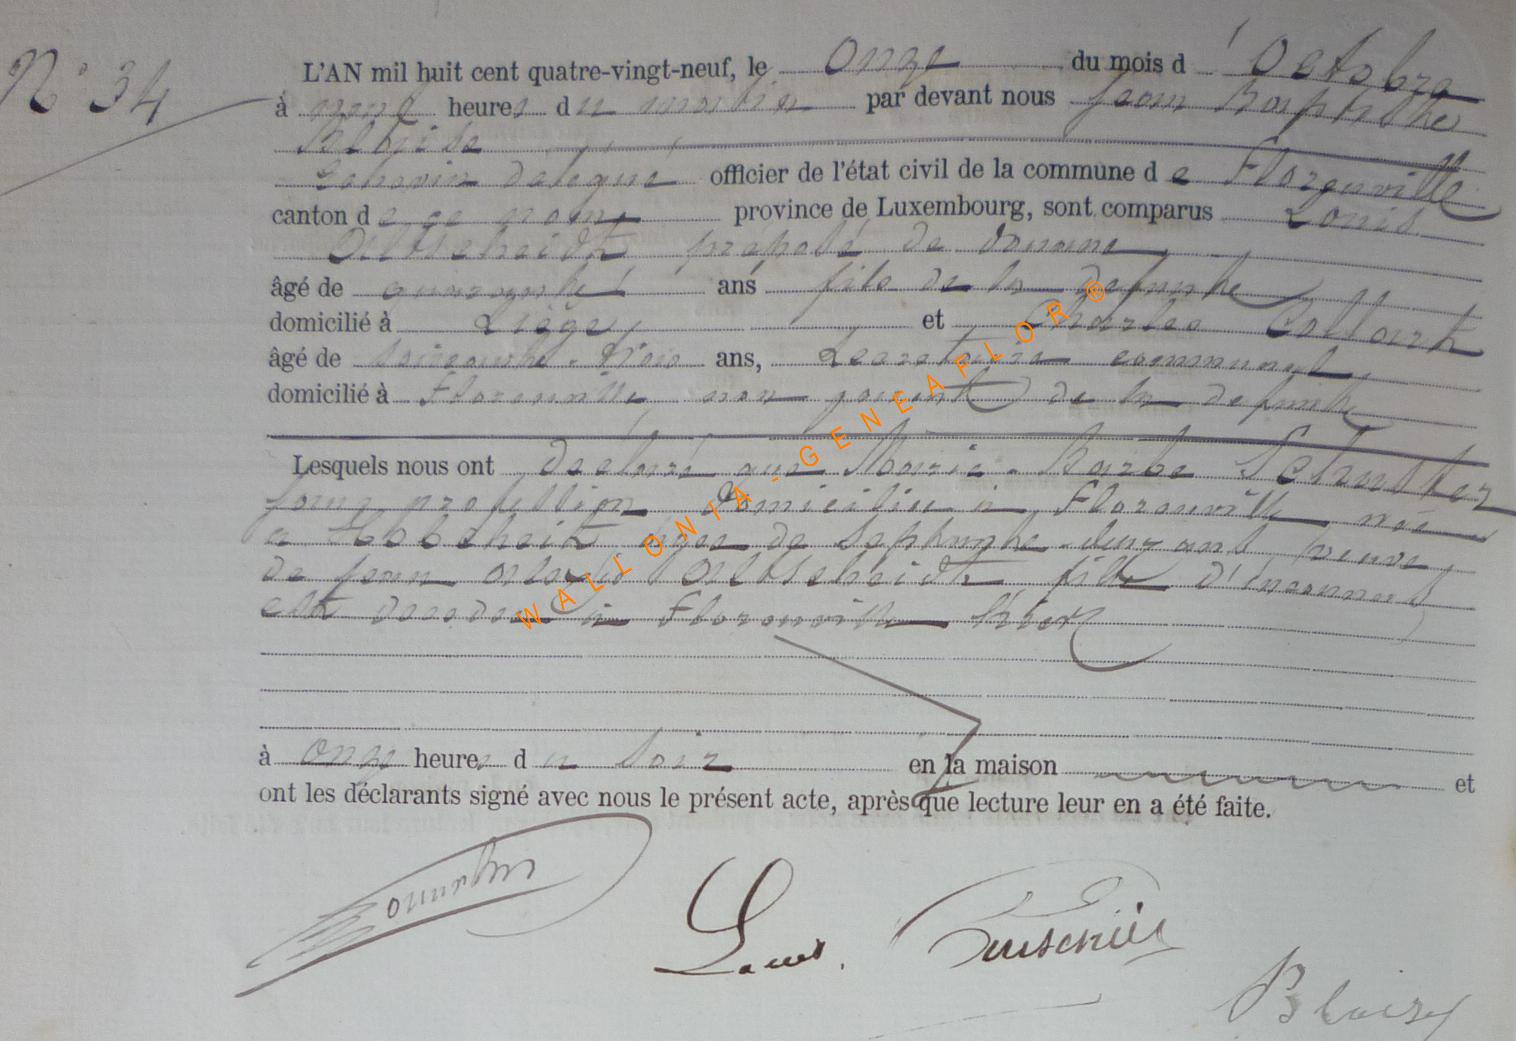 N° 34
L'AN mil huit cent quatre-vingt-neuf, le onze du mois d'Octobre
à neuf heures du matin par devant nous Jean Baptiste
Blaise
Echevin délégué officier de l'état civil de la commune de Florenville
canton de ce nom, province de Luxembourg, sont comparus Louis
préposé de douane
âgé de quarante ans fils de la défunte
domicilié à Liège, et Charles Collart
âgé de soixante-trois ans, Secrétaire communal,
domicilié à Florenville, non parent de la défunte
Lesquels nous ont déclaré que Marie-Barbe
sans profession domiciliée à Florenville, née
à âgée de septante-deux ans, veuve
de Jean fille d'inconnus
est décédée à Florenville hier
à onze heures du soir en la maison et
ont les déclarants signé avec nous le présent acte, après que lecture leur en a été faite.
Louis
Blaise
WALLONIA-GENEAFLOR®